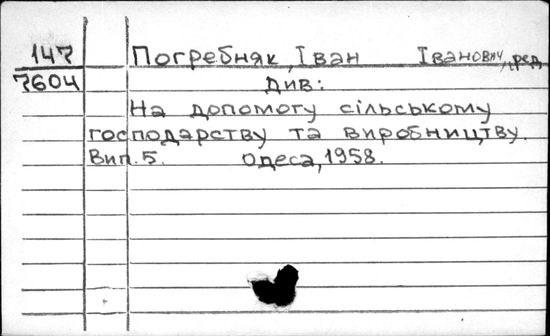 147 Погребняк, Іван Іванович, ред.
7604 див:
На допомогу сільському
господарству та виробництву.
Вип. 5. Одеса, 1958.